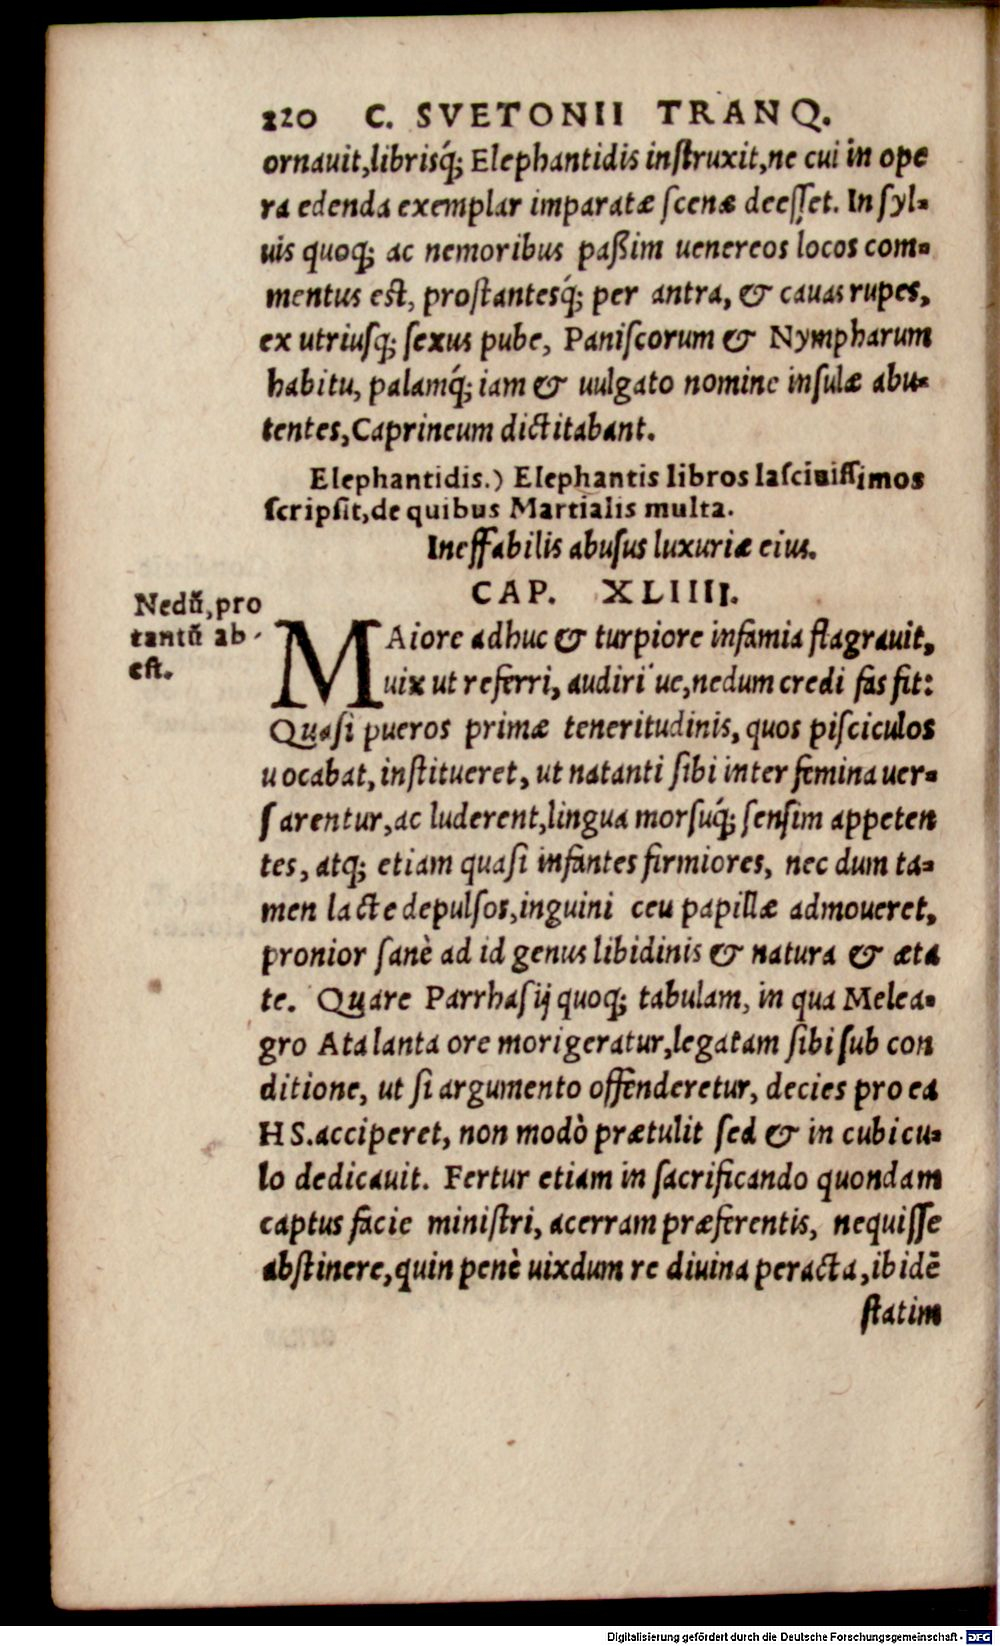 220 C. SVETONII TRANQ.
ornauit,librisq́; Elephantidis inſtruxit,ne cui in ope
ra edenda exemplar imparatæ ſcenæ deeſſet. In ſyl-
uis quoq; ac nemoribus paßim uenereos locos com-
mentus eſt, proſtantesq́; per antra, & cauas rupes,
ex utriuſq; ſexus pube, Paniſcorum & Nympharum
habitu, palamq́; iam & uulgato nomine inſulæ abu-
tentes,Caprineum dictitabant.
Elephantidis.) Elephantis libros laſciuiſſimos
ſcripſit,de quibus Martialis multa.
Ineffabilis abuſus luxuriæ eius.
CAP. XLIIII.
Nedū,pro
tantū ab-
eſt.
MAiore adhuc & turpiore infamia flagrauit,
uix ut referri, audiri ue,nedum credi fas ſit:
Quaſi pueros primæ teneritudinis, quos piſciculos
uocabat, inſtitueret, ut natanti ſibi inter femina uer-
ſarentur,ac luderent,lingua morſuq́; ſenſim appeten
tes, atq; etiam quaſi infantes firmiores, nec dum ta-
men lacte depulſos,inguini ceu papillæ admoueret,
pronior ſanè ad id genus libidinis & natura & æta
te. Quare Parrhaſij quoq; tabulam, in qua Melea-
gro Atalanta ore morigeratur,legatam ſibi ſub con
ditione, ut ſi argumento offenderetur, decies pro ea
HS.acciperet, non modò prætulit ſed & in cubicu-
lo dedicauit. Fertur etiam in ſacrificando quondam
captus facie miniſtri, acerram præferentis, nequiſſe
abſtinere,quin penè uixdum re diuina peracta,ibidē
ſtatim
Digitalisierung gefördert durch die Deutsche Forschungsgemeinschaft - DFG